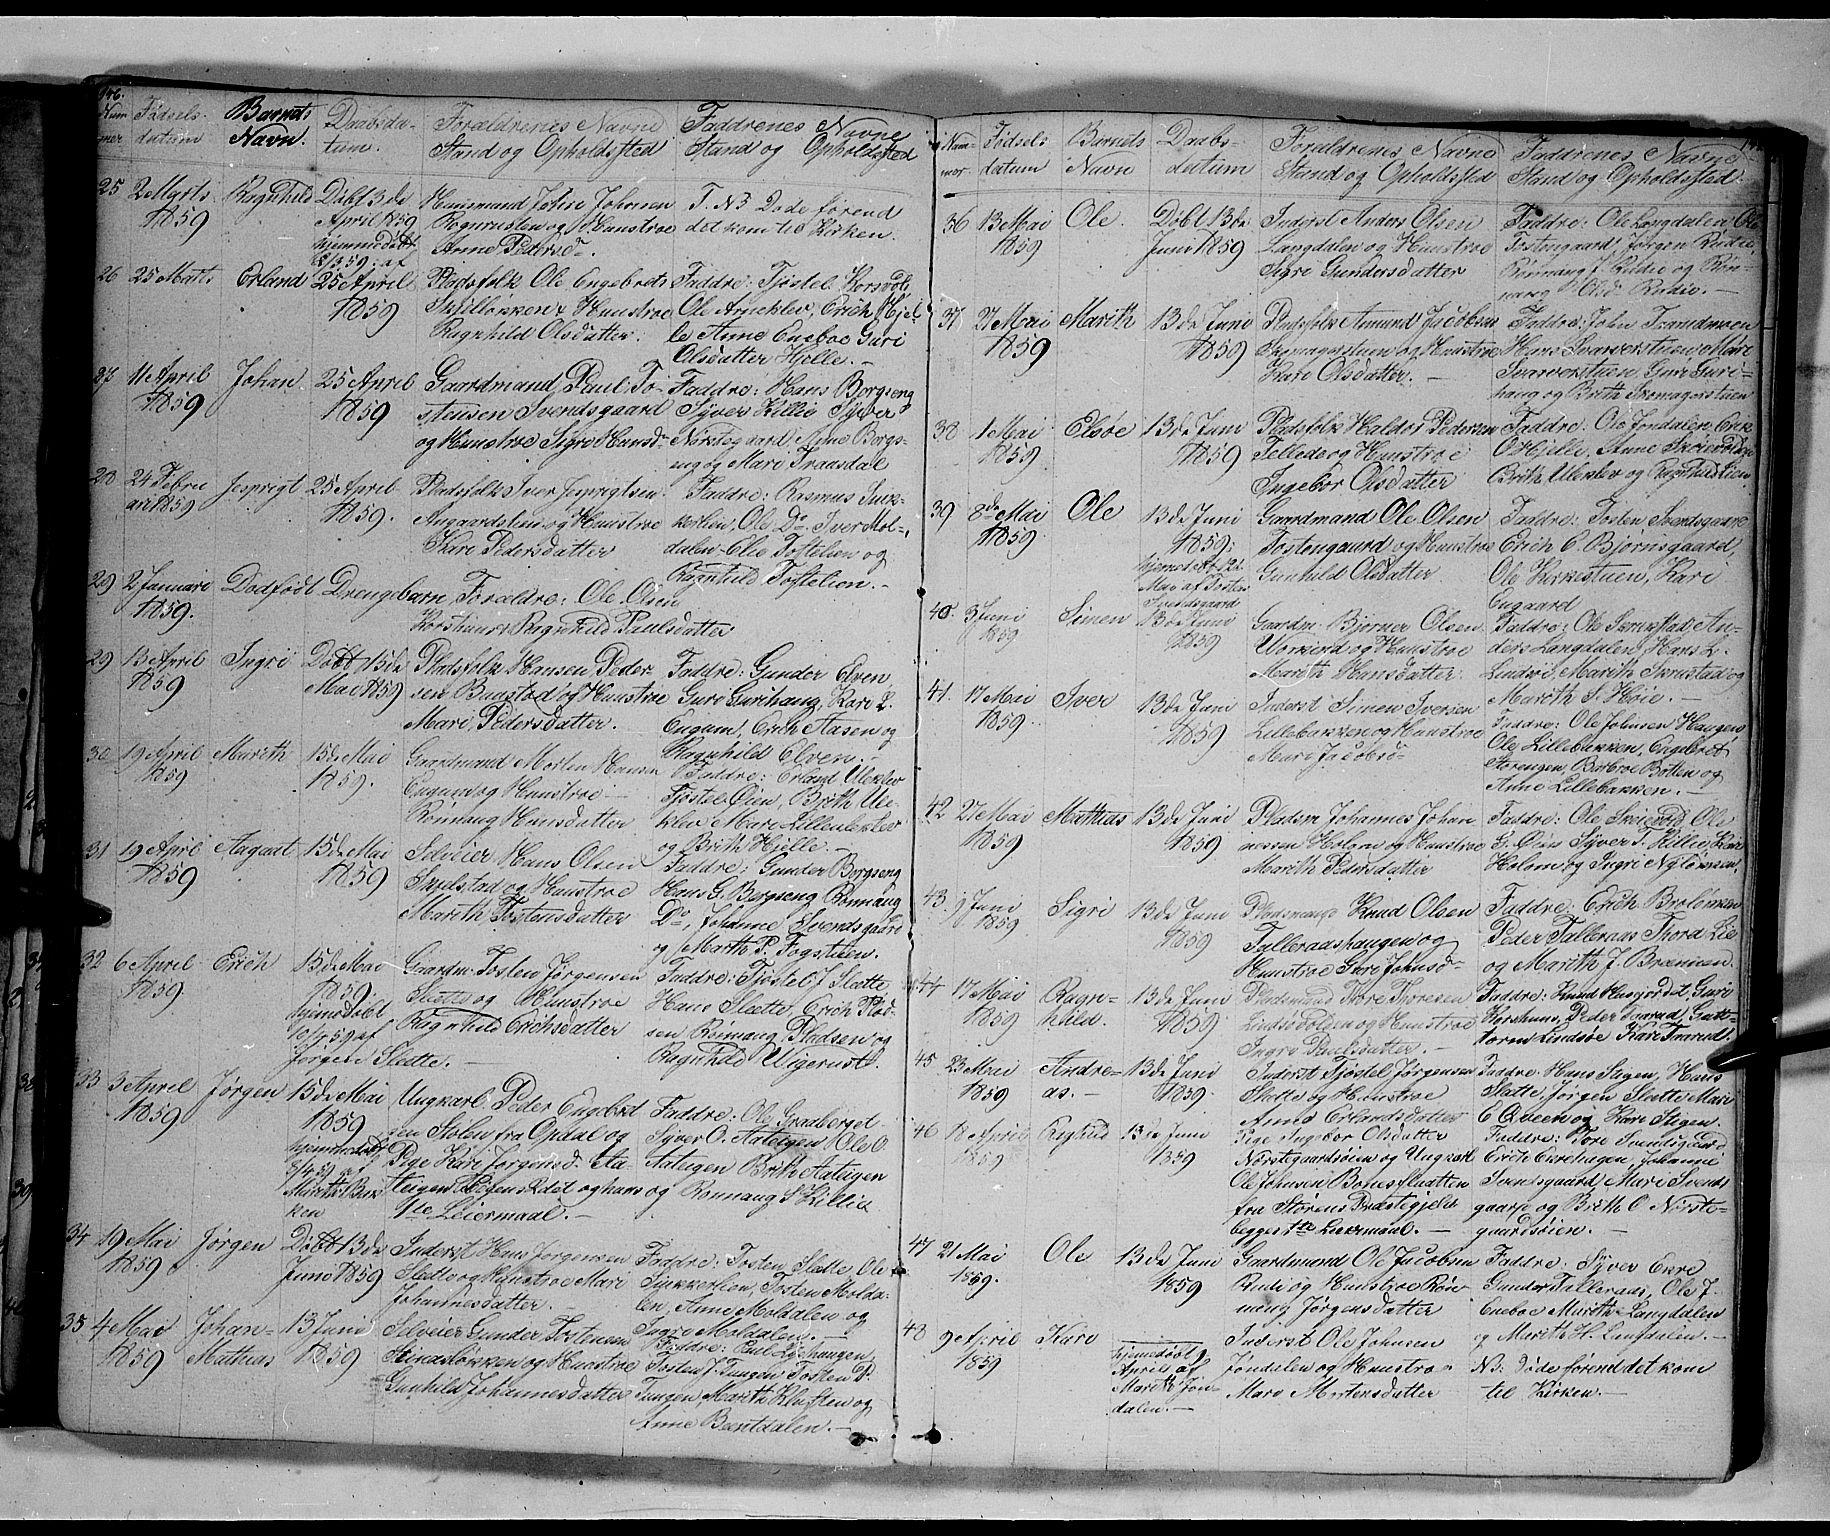 146.
Num
mer
Fødsels
datum
Barnets
Navn.
Daabsda-
tum.
Forældrenes Navne
Stand og Opholdssted
Faddrenes Navne
Stand og Opholdssted
25
2 Marts
1859
Ragnhild
Døbt 3 de
April 1859
hjemmedøbt
2/3 59 af
Huusmand John Johnsen
og Hustroe
Anne Pedersd-
T. N3 Døde førend
det kom til Kirken.
26
25 Marts
Erland
25 April
1859
Pladsfolk Ole Engebrets
Skilløkken & Hustroe
Ragnhild Olsdatter.
Faddre: Tjøstel Korsvold
Ole Arneklev, Erich Hjel-
le Anne Eneboe Guri
Olsdatter Hjelle.-
27
11 April
1859
Johan
25 April
1859
Gaardmand Paul To-
stensen Svendsgaard
og Hustroe Sigri Hansd-
Faddre: Hans Borgseng
Syver Killie Syver
Nørstegaard Anne Borgs-
eng og Mari Traasdal
28
24 Febru
ari 1859
Jesprigt
25 April
1859.
Pladsfolk Iver Jesprigtsen
Angaardslien og Hustroe
Kari Pedersdatter
Faddre: Rasmus Sink-
kerlien, Ole Do Iver Mol-
dalen Elie Toftelien og
Ragnhild Toftelien.-
29
2 Januari
1859.
Dødfødt Drengebarn, Forældre: Ole Olsen
Korshuus & Ragnhild Paulsdatter
29
13 April
1859
Ingri
Døbt 15 de
Mai 1859
Pladsfolk Hansen Peder-
sen Buustad og Hustroe
Mari Pedersdatter.
Faddre: Gunder Elven
Guro Gurihaug, Kari L.
Engum, Erich Aasen og
Ragnhild Elven.-
30
19 April
1859
Marith
15 de Mai
1859.
Gaardmand Morten Hansen
Engum og Hustroe-
Rønnaug Hansdatter
Faddre: Erland Uleklev
Tjøstel Øien, Brith Ule-
klev Mari Lilleuleklev
og Brith Hjelle.-
31
19 April
1859
Aagaat
15 de Mai
1859
Selveier Hans Olsen
Skjelstad og Hustroe
Marith Tostensdatter
Faddre: Gunder Borgseng
Hans G. Borgseng Rønnaug
Do, Johanne Svendsgaard
og Marith P. Fogstuen.
32
6 April
1859
Erich
15 de Mai
1859
hjemmedøbt
10/4 59 af
Jørgen Slette.-
Gaardm: Tosten Jørgensen
Slette og Hustroe
Ragnhild Erichsdatter
Faddre: Tjøstel J. Slette,
Hans Slette, Erich Plad-
sen Rønnaug Pladsen og
Ragnhild Uigerust.
33
3 April
1859
Jørgen
15 de Mai
1859
hjemmedøbt
af
Marith Bak
ken
Ungkarl Peder Engebret
sen Stølen fra Opdal og
Pige Kari Jørgensd. Aa-
teigen Hegens 2det og hans
1te Leiermaal.-
Faddre: Ole Graaberget
Syver O. Aateigen, Ole O.
Aateigen Brith Aateigen
og Rønnaug S. Killie
34
19 Mai
1859
Jørgen
Døbt 13 de
Juni 1859
Inderst Hans Jørgensen
Slette og Hustroe Mari
Johannesdatter.-
Faddre: Tosten Slette, Ole
Sinkkerlien, Tosten Molda-
len, Anne Moldalen og
Ingri Moldalen.-
35
4 Mai
1859
Johan-
Mathias
13 Juni
1859
Selveier Gunder Tostensen
og Hustroe
Gunhild Johannesdatter
Faddre: Paul Lyshaugen,
Tosten J. Tungen Tosten P.
Tungen, Marith Kluften og
Anne Bentdalen.-
Num-
mer.
Fødsels
datum
Barnets
Navn
Daabs-
datum
Forældrenes Navne
Stand og Opholdssted
Faddrenes Navne
Stand og Opholdssted.
36
13 Mai
1859
Ole
Døbt 13 de
Juni 1859
Inderst Anders Olsen
Langdalen og Hustroe
Sigri Gundersdatter
Faddre: Ole Langdalen Ole
Tostengaard Jørgen Rudie
Rønnaug J. Rudie og Røn-
naug Olsd. Rudie.-
37
27 Mai
1859
Marith
13 de Juni
1859
Pladsfolk Amund Jacobsen
Skomagerstuen og Hustroe
Kari Olsdatter.-
Faddre: John Tramdmoen
Hans Svarverstuen Mari
Svarverstuen Guri Guri-
haug og Brith Skomagerstuen
38
1 Mai
1859
Elsøe
13 de Juni
1859
Pladsfolk Haldor Pedersen
Tellede og Hustroe
Ingebor Olsdatter
Faddre: Ole Jondalen, Erik
O Hjelle, Anne
Brith Uleklev og Ragnhild Lien
39
8 de Mai
1859
Ole
13 de Juni
1859
hjemmedøbt 12te
Mai af Tosten
Svendsgaard
Gaardmand Ole Olsen
Tostengaard og Hustroe
Gunhild Olsdatter
Faddre: Tosten Svendsgaard
Erich E. Bjørnsgaard,
Ole Kirkestuen, Kari
Engaard
40
3 Juni
1859
Simen
13 de Juni
1859
Gaardm: Bjørner Olsen
og Hustroe
Marith Hansdatter
Faddre: Ole Skrustad, An-
ders Langdalen, Hans L.
Lindsø, Marith Skrustad og
Marith S. Høie.-
41
17 Mai
1859
Iver
13 de Juni
1859
Inderst Simen Iversen
Lillebakken og Hustroe
Mari Jacobsd-
Faddre: Ole Johnsen Haugen
Ole Lillebakken, Engebret
Storengen, Barbroe Botten og
Anne Lillebakken.-
42
27 Mai
1859
Mathias
13 de Juni
1859
Pladsm Johannes Johan
nessen Holom og Hustroe
Marith Pedersdatter
Faddre: Ole Skieivold Ole
G. Øien Syver T. Killie Kari
Holom og Ingri Nylømoen
43
9 Juni
1859
Sigri
13 de Juni
1859
Pladsmand Knud Olsen
Talleraashaugen og
Hustroe Guri Johnsd-
Faddre: Erich Broløkken
Peder Talleraas Thord Lie
og Marith J. Brænnen.
44
17 Mai
1859
Ragn-
hild.
13 de Juni
1859
Pladsmand Thore Thoresen
Lindsødølen og Hustroe
Ingri Paulsdatter.-
Faddre: Knud Husfjordet, Guri
Korshuus, Peder Traarud, Gutt-
torm Lindsøe Kari Traarud.
45
23 Mai
1859
Andre-
as.-
13 de Juni
1859
Inderst Tjøstel Jørgensen
Slette og Hustroe
Anne Erlandsdatter
Faddre: Hans Stegen, Hans
Slette Jørgen Slette Mari
E Qveen og Kari Stegen.
46
18 April
1859
13 de Juni
1859
Pige Ingebor Olsdatter
Nørstegaardsøien og Ungkarl
Ole Johnsen Bonesfladten
fra Størens Præstegjeld
begges 1te Leiermaal.-
Faddre: Tore Svendsgaard
Erich Ekrehagen, Johanne
Svendsgaard, Mari Svends
gaard og Brith O Nørste-
gaardsøien.-
47
21 Mai
1859.
Ole
13 de Juni
1859
Gaardmand Ole Jacobsen
Rudi og Hustroe Røn-
naug Jørgensdatter
Faddre: Syver Ekre
Gunder Talleraas, Ole J.
Eneboe Marith Langdalen
og Marith H. Langdalen.-
48
9 April
1859
Kari
hjemmedøbt 9
April af
Marith Jon
dalen.-
Inderst Ole Johnsen
Jøndalen og Hustroe
Mari Mortensdatter
N3: Døde førend det kom
til Kirken.-